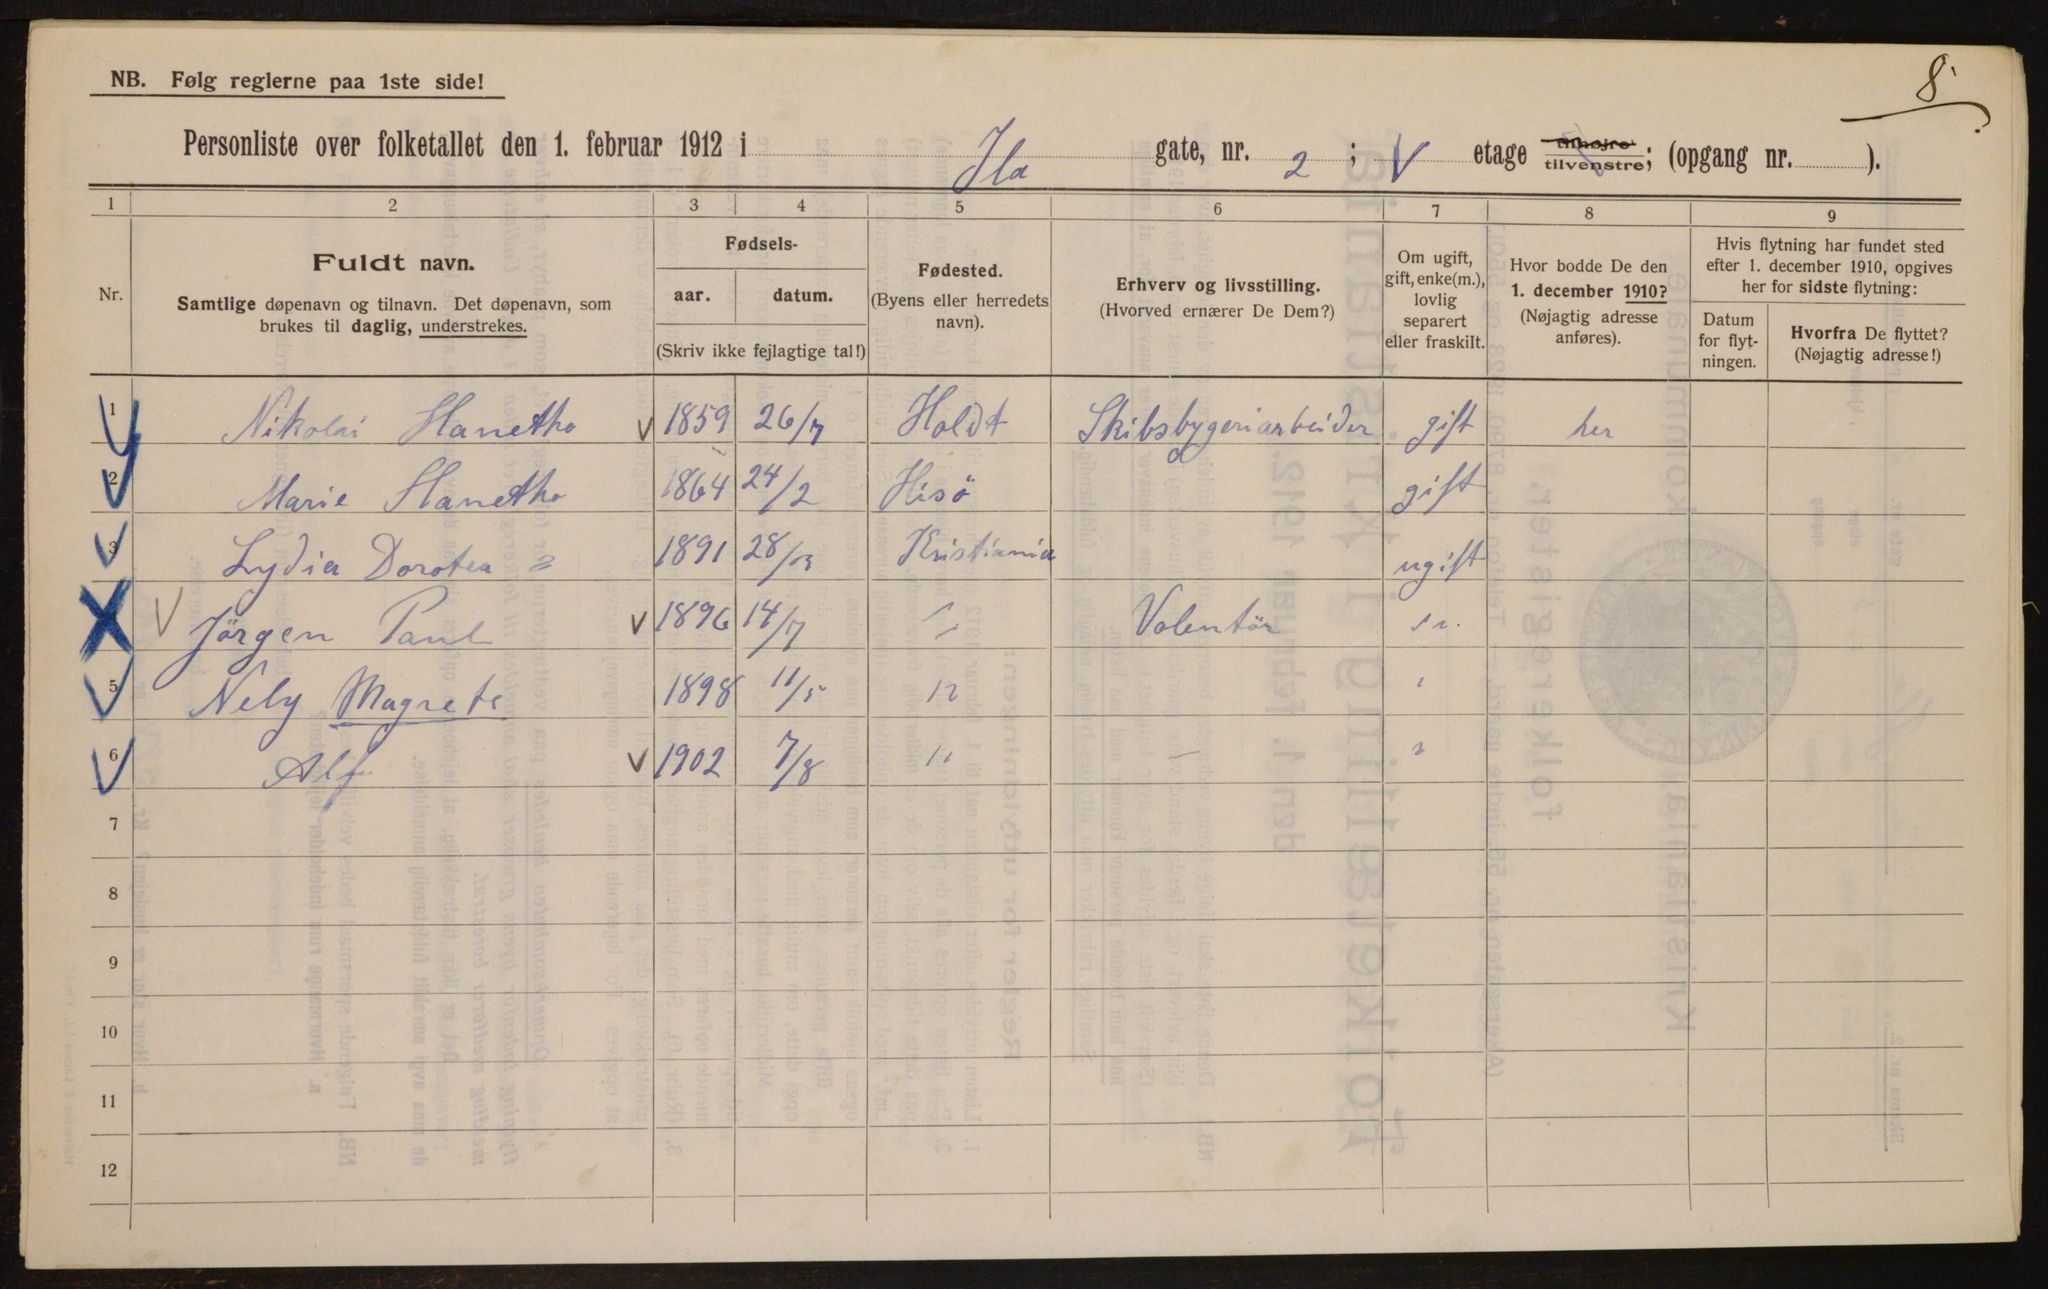 8
NB. Følg reglerne paa 1ste side!
Personliste over folketallet den 1. februar 1912 i Ila gate, nr. 2; V etage tilhøjre tilvenstre; (opgang nr. ).
1 2 3 4 5 6 7 8 9
Nr.
Fuldt navn.
Samtlige døpenavn og tilnavn. Det døpenavn, som
brukes til daglig, understrekes.
Fødsels-
aar. datum.
(Skriv ikke fejlagtige tal!)
Fødested.
(Byens eller herredets
navn).
Erhverv og livsstilling.
(Hvorved ernærer De Dem?)
Om ugift,
gift, enke(m.),
lovlig
separert
eller fraskilt.
Hvor bodde De den
1. december 1910?
(Nøjagtig adresse
anføres).
Hvis flytning har fundet sted
efter 1. december 1910, opgives
her for sidste flytning:
Datum
for flyt-
ningen.
Hvorfra De flyttet?
(Nøjagtig adresse!)
1 Nikolai Hanetho 1859 26/7 Holdt Skibsbygeriarbeider gift her
2 Marie Hanetho 1864 24/2 Hisö gift
3 Lydia Dorotea " 1891 28/ Kristiania ugift
Jörgen Paul 1896 14/7 " Volentör "
5 Nely Magrete 1898 11/5 " "
6 Alf 1902 7/8 " — "
7
8
9
10
11
12